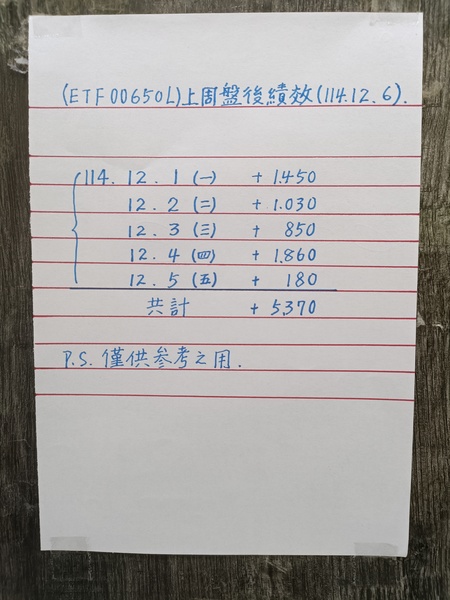 (ETF00650L)上周盤後績效(114.12.6).
114.12.1(一) +1.450
12.2(二) +1.030
12.3(三) +850
12.4(四) +1.860
12.5(五) +180
共計 +5.370
P.S.僅供參考之用.